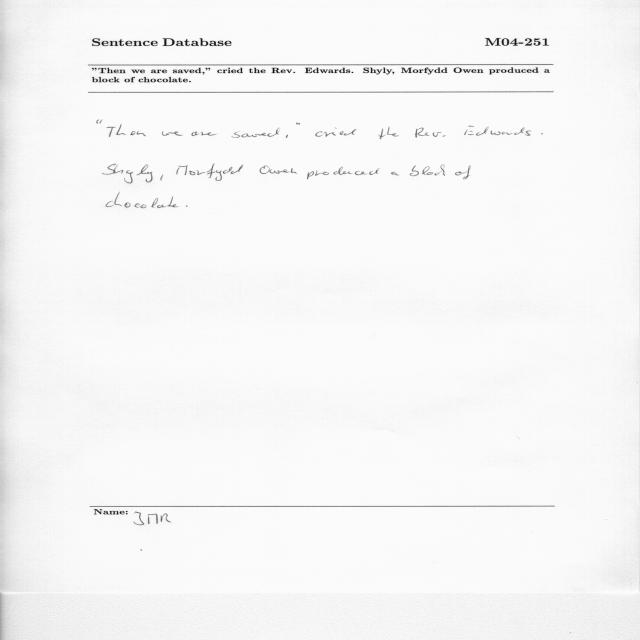 Sentence Database M04-251
"Then we are saved," cried the Rev. Edwards. Shyly, Morfydd Owen produced a
block of chocolate.
"Then we are saved," cried the Rev. Edwards.
Shyly, Morfydd Owen produced a block of
chocolate.
Name: JMR